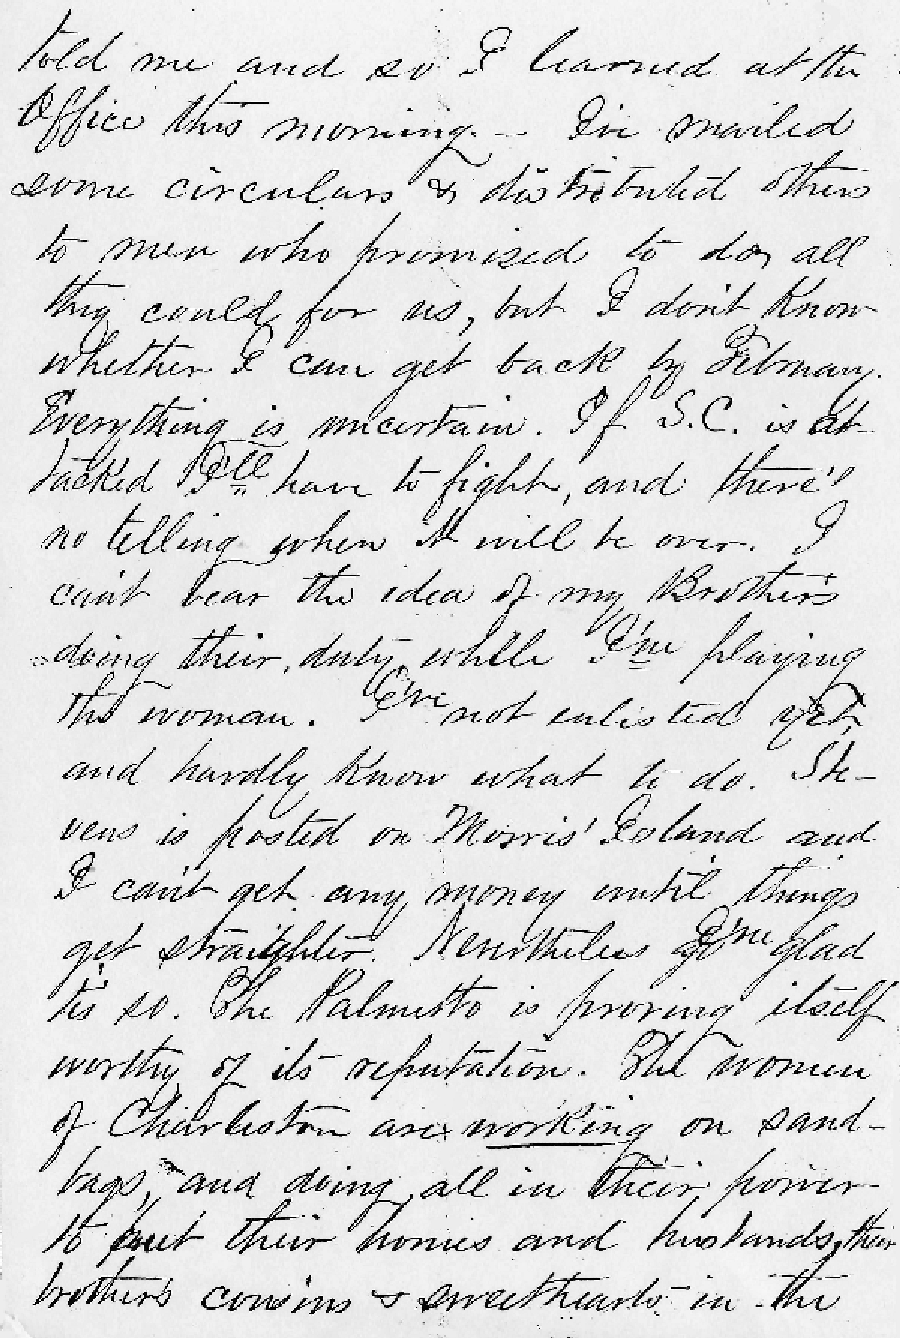 told me and so I learned at the
Office this morning. — I've mailed
some circulars & distributed others
to men who promised to do all
they could for us, but I don't know
whether I can get back by February.
Everything is uncertain. If S.C. is at-
tacked I'll have to fight, and there's
no telling when it will be over. I
can't bear the idea of my Brothers
doing their duty while I'm playing
the woman. I've not enlisted yet,
and hardly know what to do. Ste-
vens is posted on Morris' Island and
I can't get any money until things
get straighter. Nevertheless I'm glad
tis so. The Palmetto is proving itself
worthy of its reputation. The women
of Charleston are working on sand-
bags, and doing all in their power
to put their homes and husbands, their
brothers cousins & sweethearts in the